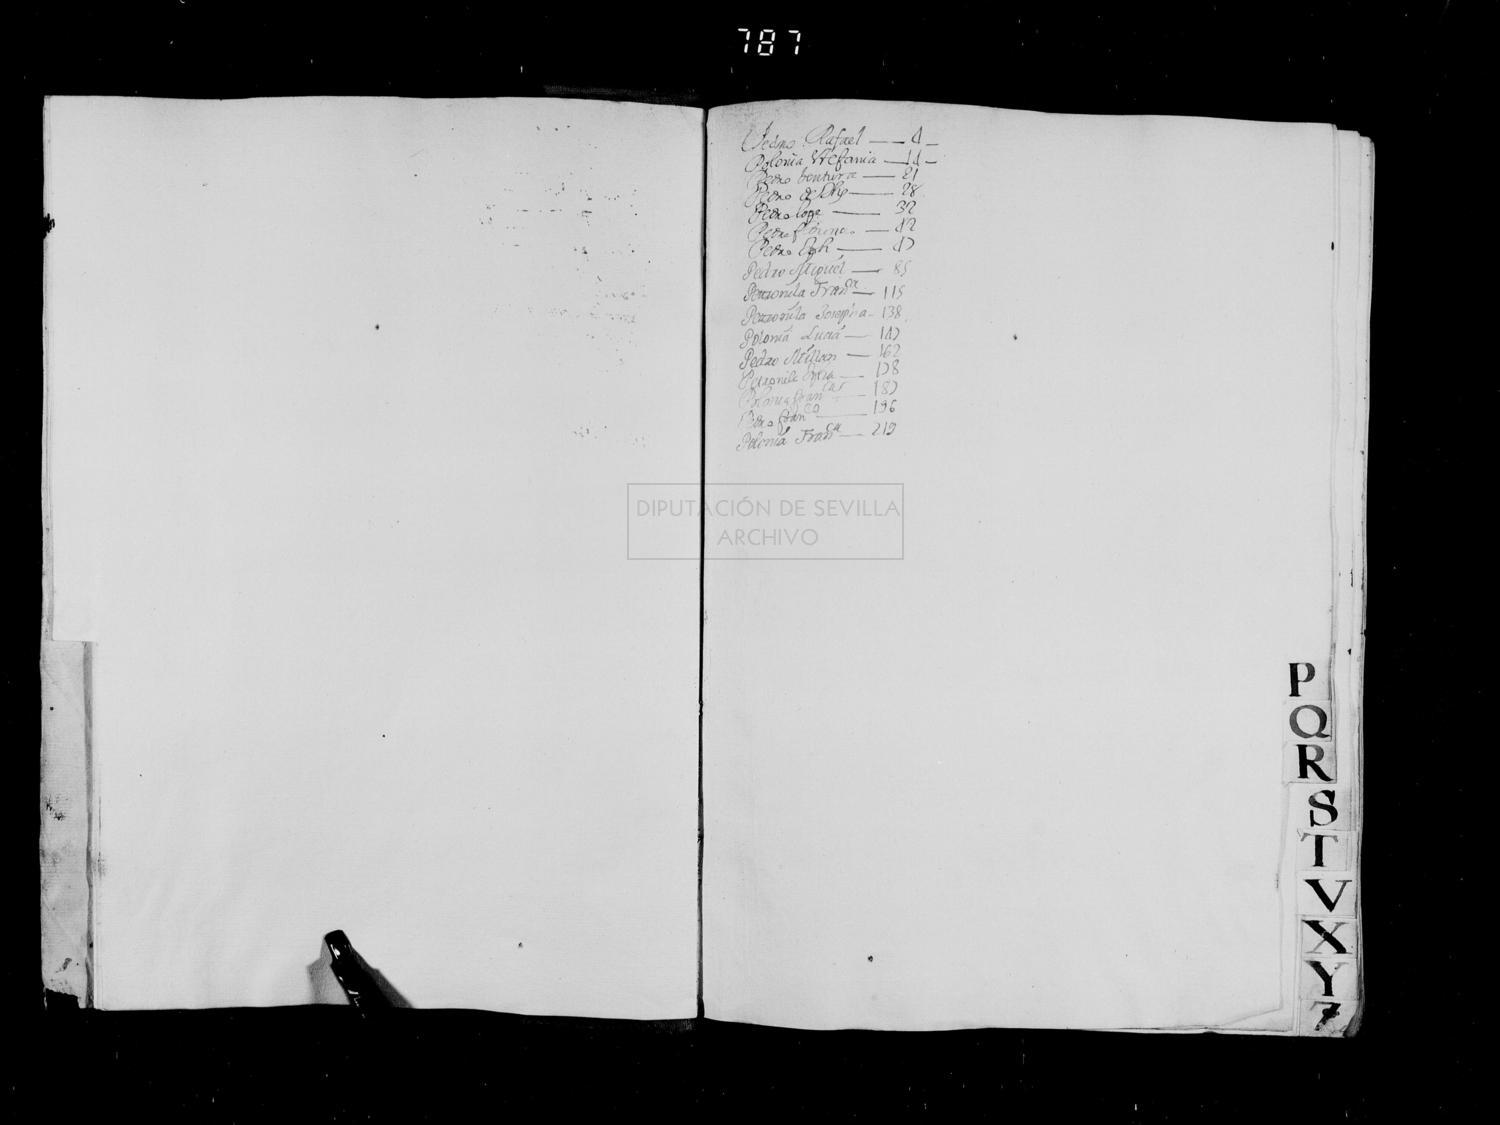 787
Pedro Rafael — 4
Polonia Stefania — 14
Pedro bentura — 21
Pedro — 28
Pedro Jope — 32
Pedro — 42
Pedro — 47
Pedro Miguel — 85
Petronila Fran^ca — 115
Petronila Josepha - 138
Polonia Lucia — 147
Pedro Millan — 162
Petronila — 178
Polonia fran^cas — 187
Pedro fran^co — 196
Polonia Fran^ca — 219
DIPUTACIÓN DE SEVILLA
ARCHIVO
P
Q
R
S
T
V
X
Y
Z